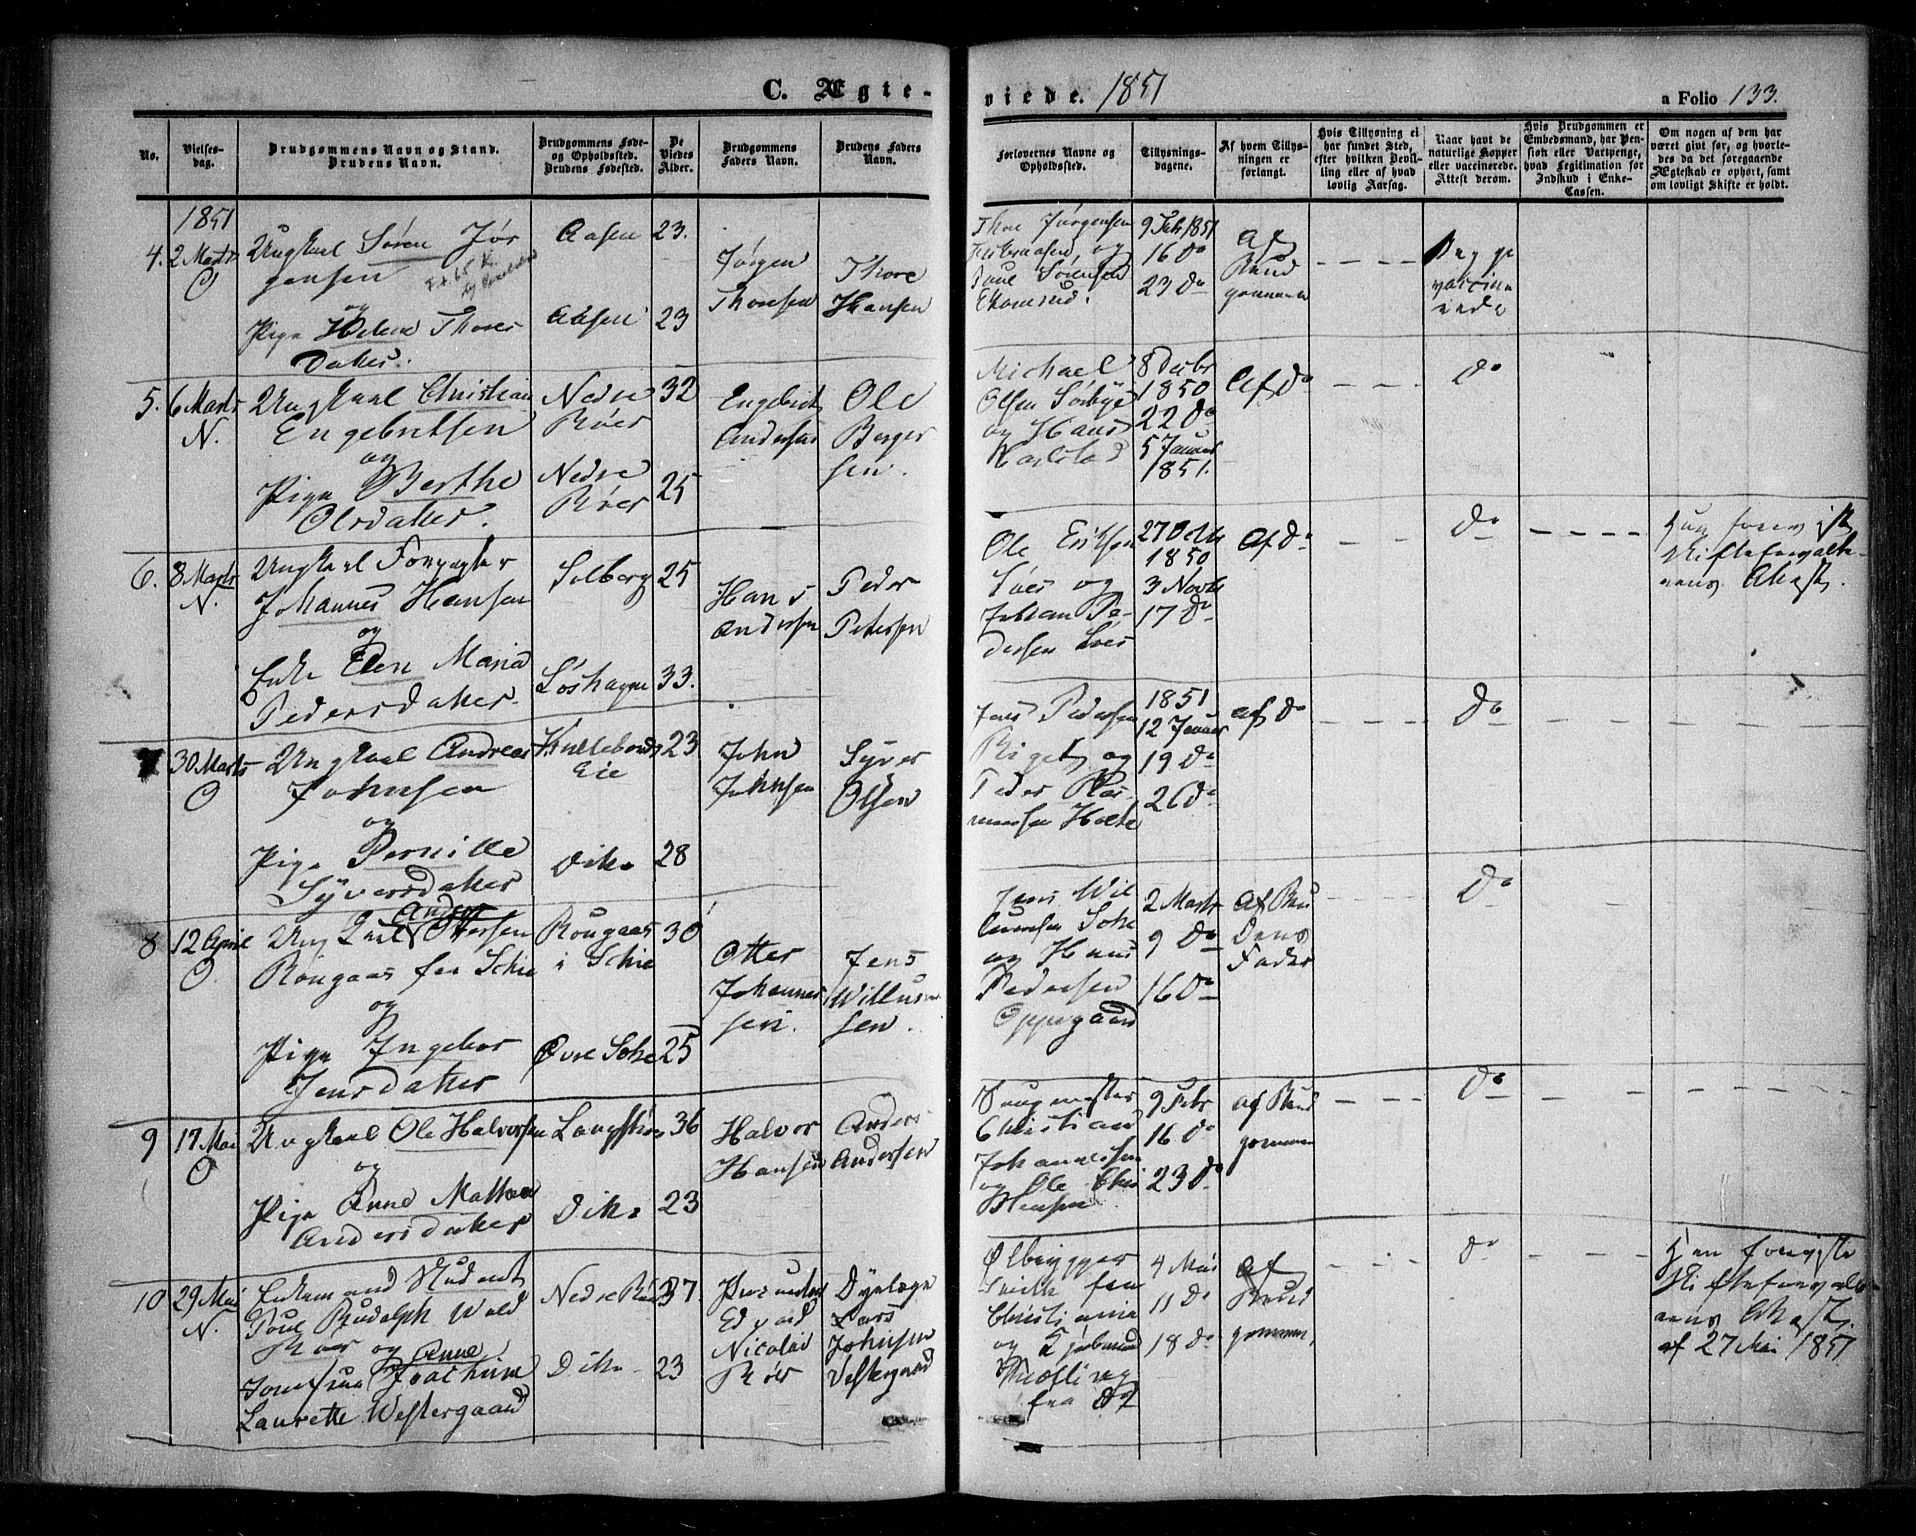 C. Ægte-
viede. 1851
a Folio 133.
No.
Vielses-
dag.
Brudgommens Navn og Stand.
Brudens Navn.
Brudgommens Føde-
og Opholdssted.
Brudens Fødested.
De
Viedes
Alder.
Brudgommens
Faders Navn.
Brudens Faders
Navn.
Forlovernes Navne og
Opholdssted.
Tillysnings-
dagene.
Af hvem Tillys-
ningen er
forlangt.
Hvis Tillysning ei
har fundet Sted,
efter hvilken Bevil-
ling eller af hvad
lovlig Aarsag.
Naar havt de
naturlige Kopper
eller vaccinerede.
Attest derom.
Hvis Brudgommen er
Embedsmand, har Pen-
sion eller Vartpenge,
hvad Legitimation for
Indskud i Enke-
Cassen.
Om nogen af dem har
været givt før, og hvorle-
des da det foregaaende
Ægteskab er ophørt, samt
om lovligt Skifte er holdt.
1851
4. 2 Marts
O
Ungkarl Søren Jør
gensen
og
Pige Helene Thores
Datter.
Aasen 23.
Aasen 23
Jørgen
Thoresen
Thore
Hansen
Thore Jørgensen
og
Poul Sørensen
9 Feb. 1851
16 Do
23 Do
Af
Brud
gommen
Begge
vaccine
rede
5. 6 Marts
N.
Ungkarl Christian
Engebretsen
og
Pige Berthe
Olsdatter.
Nedre
Röer
32
Nedre
Röer
25
Engebret
Andersen
Ole
Berger
sen.
Michael
Olsen Sørbye
og Hans
Karlstad
8 Decbr
1850
22 Do
5 Januar
1851.
Af Do
Do
6. 8 Marts
N.
Ungkarl Forpagter
Johannes Hansen
og
Enke Elen Maria
Pedersdatter.
Solberg 25
33.
Hans
Andersen
Peder
Petersen
Ole Eriksen
Soes og
Johan Pe-
dersen Soes
27 Octb
1850
3 Novb
17 Do
Af Do
Do
Hun foreviste
Skifteforvalte-
rens Attest.
7 30 Marts
O
Ungkarl Andreas
Johnsen
og
Pige Pernille
Syversdatter
Eie
23
Dito 28
John
Johnsen
Syver
Olsen
Jens Pedersen
og
Peder Ras-
mussen Holte
1851
12 Januar
19 Do
26 Do
af Do
Do
8 12 April
O.
Ung Karl Anders Ottersen
Röngaas fra Schie
og
Pige Ingebor
Jensdatter
Röngaas
i Schie
30
Øvre Schie 25
Otter
Johannes
sen.
Jens
Willum
sen.
Jens Wil
lumsen
og Hans
Pedersen
Oppegaard
2 Marts
9 Do
16 Do
Af Bru
dens
Fader
Do
9 17 Mai
O
Ungkarl Ole Halvorsen
og
Pige Anne Mathea
Andersdatter
36
Dito 23
Halvor
Hansen
Anders
Andersen
Christian
Johannesen
og Ole Chri
stensen
9 Febr
16 Do
23 Do
af Brud
gommen
Do
10 29 Mai
N.
Enkemand Student
Poul Rudolph Wold
Röer og
Jomfrue Anne Joachime
Laurette Westergaard
Nedre Röer 37
Dito 23
Edvard
Nicolai
Röer
Lars
Johnsen
Vestergaard
Ølbrygger
fra
Christiania
og Kjøbmand
fra Do
4 Mai
11 Do
18 Do
Af
Brud
gommen
Do
Han foreviste
Skifteforvalte
rens Attest
af 27 Mai 1851